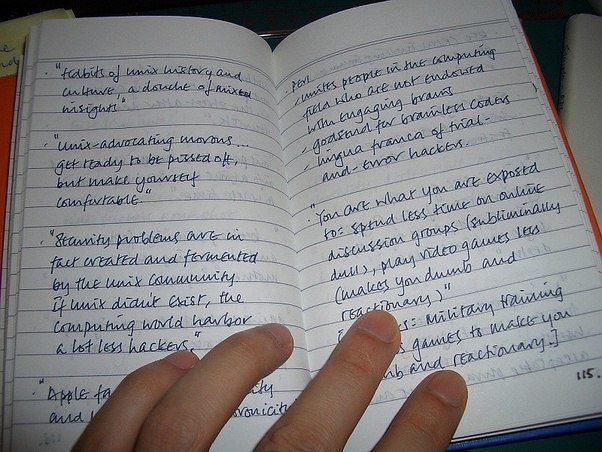 · "Tidbits of unix history and
culture, a douche of mixed
insights"
· "Unix-advocating morons...
get ready to be pissed off,
but make yourself
comfortable."
· "Security problems are in
fact created and fermented
by the unix community
if unix didn't exist, the
computing world harbor
a lot less hackers."
· "Apple
and
· Perl
- unites people in the computing
field who are not endowed
with engaging brains
- godsend for brainless coders
- lingua franca of trial-
and-error hackers.
· "You are what you are exposed
to: spend less time on online
discussion groups (subliminally
dull), play video games less
(makes you dumb and
reactionary)"
= Military training
games to make you
and reactionary.]
115.